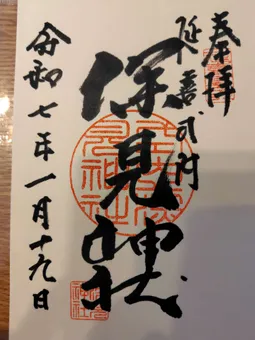 奉拝
延喜式内
深見神社
令和七年一月十九日